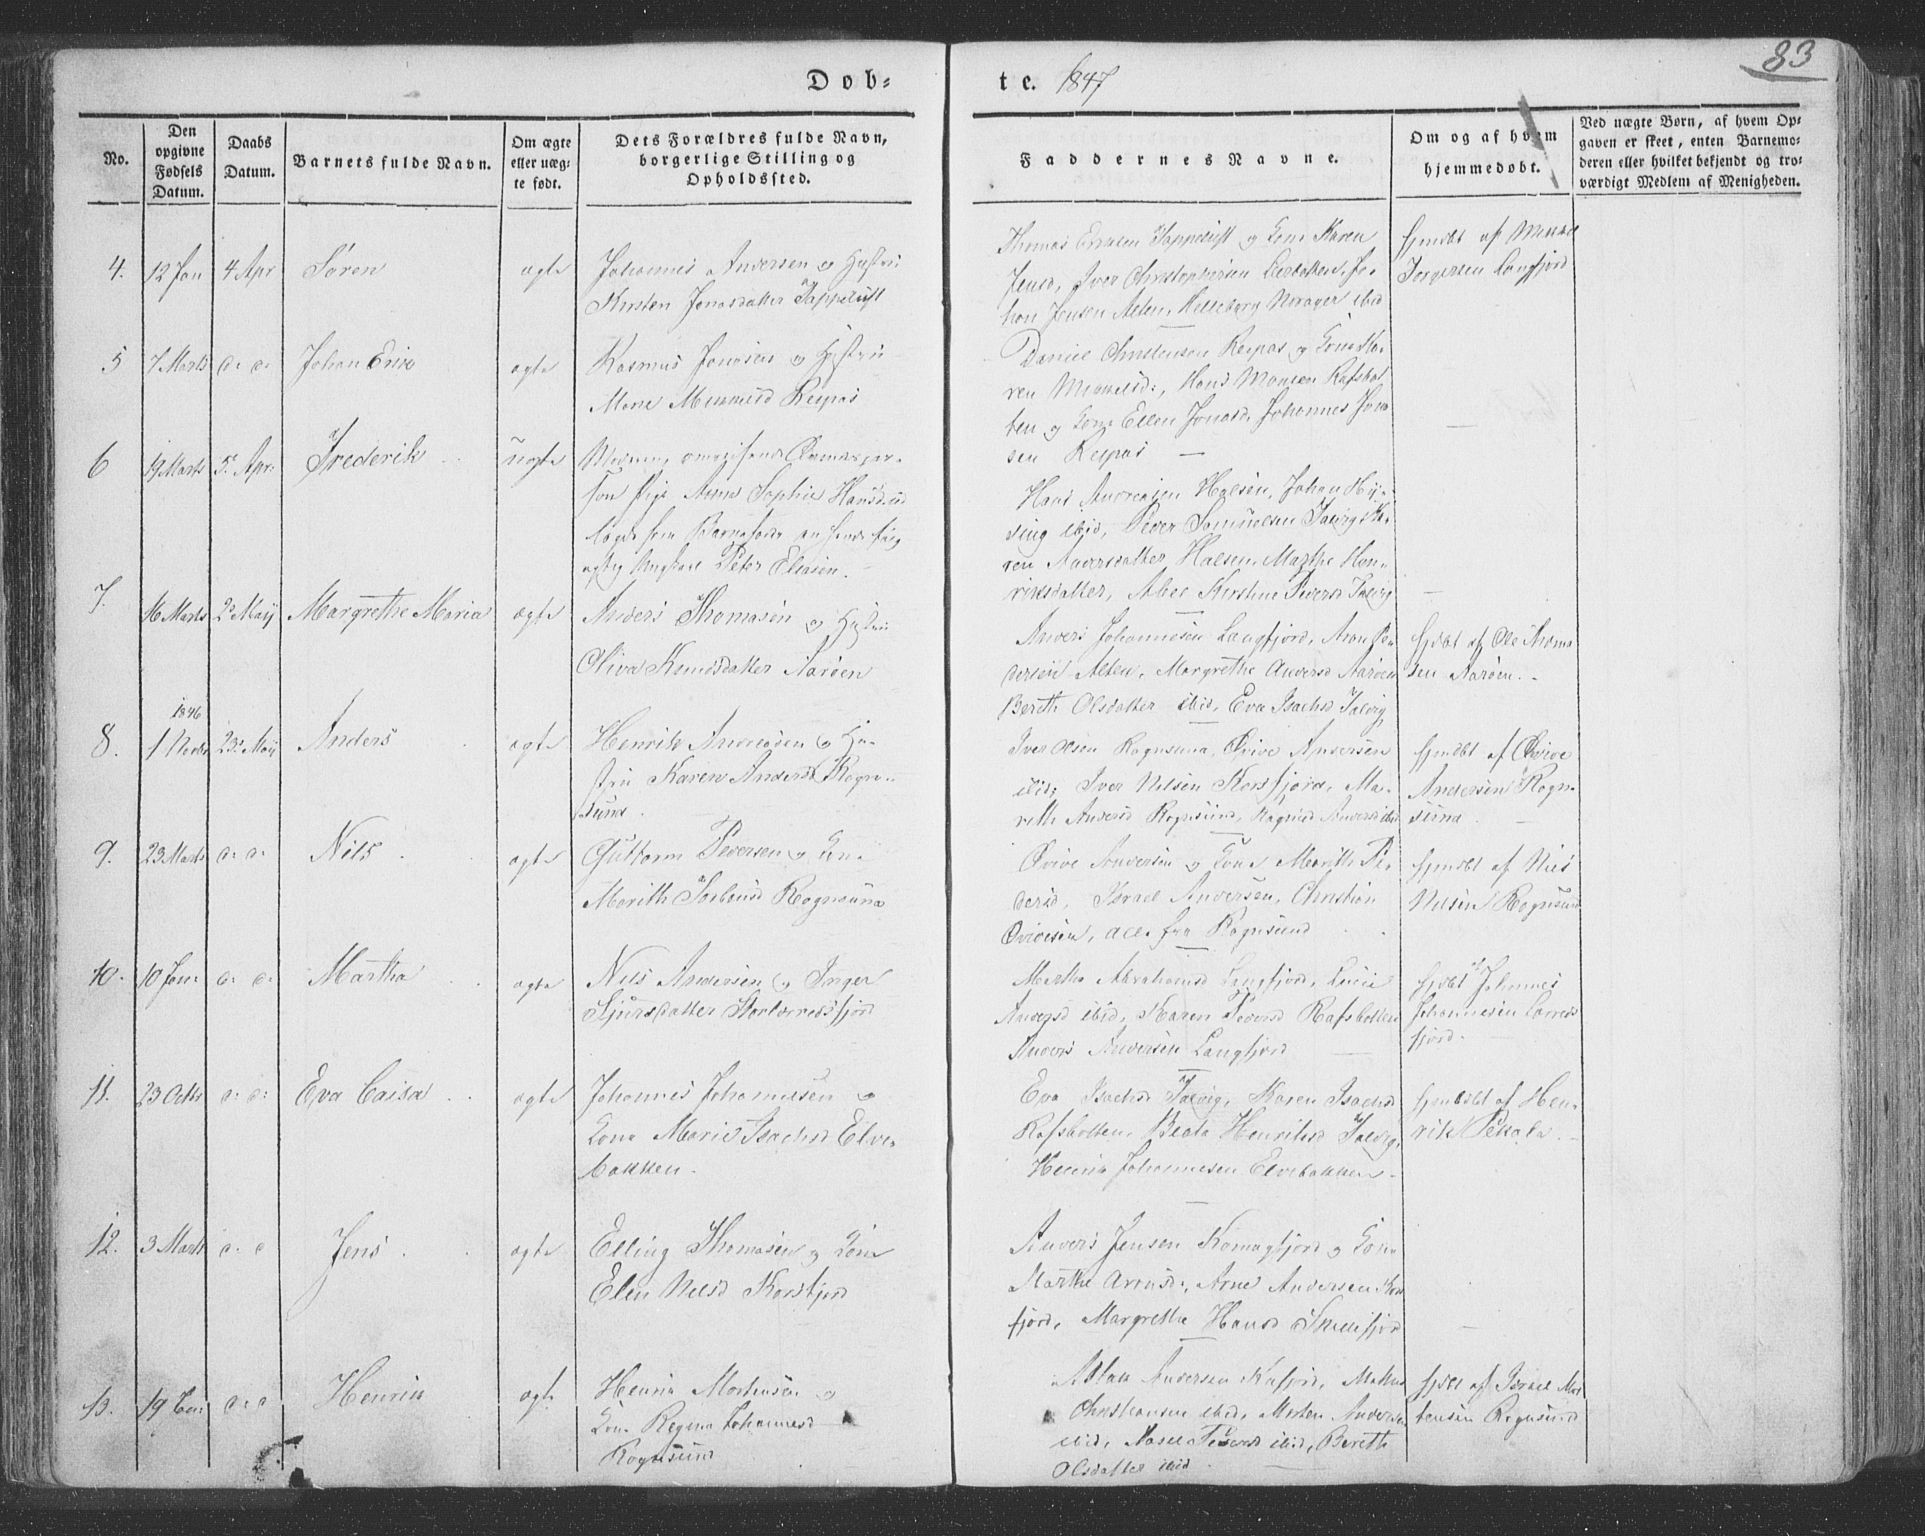 83
Døb-
te. 1847
No.
Den opgivne Fødsels Datum.
Daabs Datum.
Barnets fulde Navn.
Om ægte eller uæg-te født.
Dets Forældres fulde Navn, borgerlige Stilling og Opholdssted.
Faddernes Navne.
Om og af hvem hjemmedøbt.
Ved uægte Børn, af hvem Op-
gaven er skeet, enten Barnemo-
deren eller hvilket bekjendt og tro-
værdigt Medlem af Menigheden.
4. 12 Jan 4 Apr Søren ægte
Johannes Andersen og Hustru
Kirsten Jonasdatter Tappeluft
Thomas Tappeluft og Kone Karen
Jensd, Iver Christophersen Jo-
han Jensen Alten, ibid
hjmdbt af
Torgersen Langfjord
5 7 Marts d: d: Johan Eric ægte
Rasmus Jonasen og Hustru
Marie Reipas
Daniel Christensen Reipas og Kone Ma-
ren Mikkelsd:, Hans Monsen Rafsbot
ten og Kone Ellen Jonasd, Johannes Jona
sen Reipas —
6 19 Marts 5. Apr: Frederik uægte
Pige Anna Sophie Hansd
Barnefader
Ungkarl Peter Eliasen.
Hans Andreasen Halsen, Johan
ibid, Peder Samuelsen Talvig, Ka-
ren Andersdatter Halsen, Marthe Hen-
riksdatter, Kirstine Pedersd Talvig
7. 16 Marts 2 Maij Margrethe Maria ægte
Anders Thomasen og Hustru
Oliva Knudsdatter Aarøen
Anders Johannesen Langfjord, Aron Pe-
dersen Alten, Margrethe Andersd Aarøen
Bereth Olsdatter ibid, Eva Isachsd Talvig
hjdbt af Ole Thoma
sen Aarøen. -
1846
8. 1 Novbr 23: Maij Anders ægte
Henrik Andreasen og Hu-
stru Karen Andersd Rogn-
sund.
Iver Olsen Rognsund, Qvive Andersen
ibid, Iver Nilsen Korsfjord, Ma-
reth Andersd Rognsund, Ragnild Andersd ibid
hjmdbt af Qvive
Andersen Rogn-
sund. —
9. 23 Marts d: d: Nils ægte
Guttorm Pedersen og Kone
Marith Rognsund
Qvive Andersen og Kone Marith Pe-
dersd, Israel Andersen, Christian
Qvivesen, alle fra Rognsund
hjmdbt af Nils
Nilsen Rognsund
10. 10 Jan: d: d: Martha ægte
Nils Andersen og Inger
Sjursdatter
Martha Abrahamsd Langfjord, Lucie
Andersd ibid, Maren Pedersd Rafsbotten
Anders Andersen Langfjord —
hjdbt af Johannes
Johannesen
fjord. —
11. 23 Octbr d: d: Eva Caisa ægte
Johannes Johannesen og
Kone Marie Isachsd Elve-
bakken.
Eva Isachsd Talvig, Karen Isachsd
Rafsbotten, Beata Henriksd Talvig,
Henrik Johannesen Elvebakken -
hjmdbt af Hen-
rik Pekola. -
12. 3 Marts d: d Jens ægte
Elling Thomasen og Kone
Elen Nilsd Korsfjord
Anders Jensen Komagfjord og Kone
Marthe Arensd:, Arne Andersen Kors
fjord, Margrethe Hansd
13. 19 Jan: d: d Henrik ægte
Henrik Mortensen og
Kone Regina Johannesd
Rognsund
Aslak Andersen Kafjord, Mathis
Christiansen ibid, Morten Andersen
ibid, Pedersd ibid, Bereth
Olsdatter ibid.
hjdbt af Israel Mor
tensen Rognsund